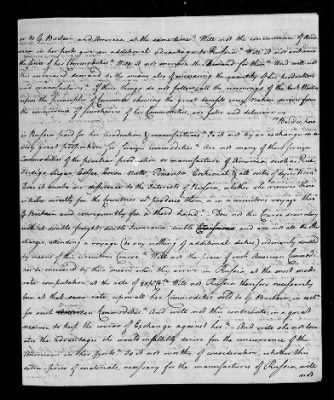 or to G. Britain and America at the same time? Will not the concurrence of these
men in her ports give an additional advantage to Russia? Will it not enhance
the price of her Commodities? Will it not increase the Demand for them? And will not
this increased demand be the means also of increasing the quantity of her productions
and manufactures? If these things do not follow, all the reasonings of the best Writers
upon the principles of Commerce shewing the great benefits every nation derives from
the concurrence of purchasers of her Commodities, are false and delusive.
Besides, how
is Russia paid for her productions & manufactures? Is it not by an exchange in a
very great proportion for foreign commodities? Are not many of these foreign
Commodities of the peculiar production or manufacture of America, such as Rice
Indigo, Sugar, Coffee, Cocoa Nutts, Pimento, Cochineal, & all sorts of dying Woods?
Now it marks an difference to the Interests of Russia, whether she receives these
articles directly from the Countries wh produce them, or in a circuitous voyage thro'
G. Britain and consequently from a third hand? Does not this Course draw along
with it double freight, double Insurance, double Commissions and in a word all the
charges attending a voyage (to say nothing of additional duties) absolutely
by reason of this circuitous Course? Will not the price of such American Commod.
ities be increased by this means when they arrive in Russia, at the most mode-
rate computation at the rate of 20 pCt? Will not Russia therefore necessarily
lose at that same rate, upon all her Commodities sold to G. Britain, in exch.
for such Commodities? And will not this contribute in a great
measure, to keep the course of Exchange against her? And will she not lose
also the advantage she would infallibly derive from the concurrence of the
Americans in their ports? Is it not worthy of consideration, whether the
extra price of materials, necessary for the manufactures of Russia, will
not